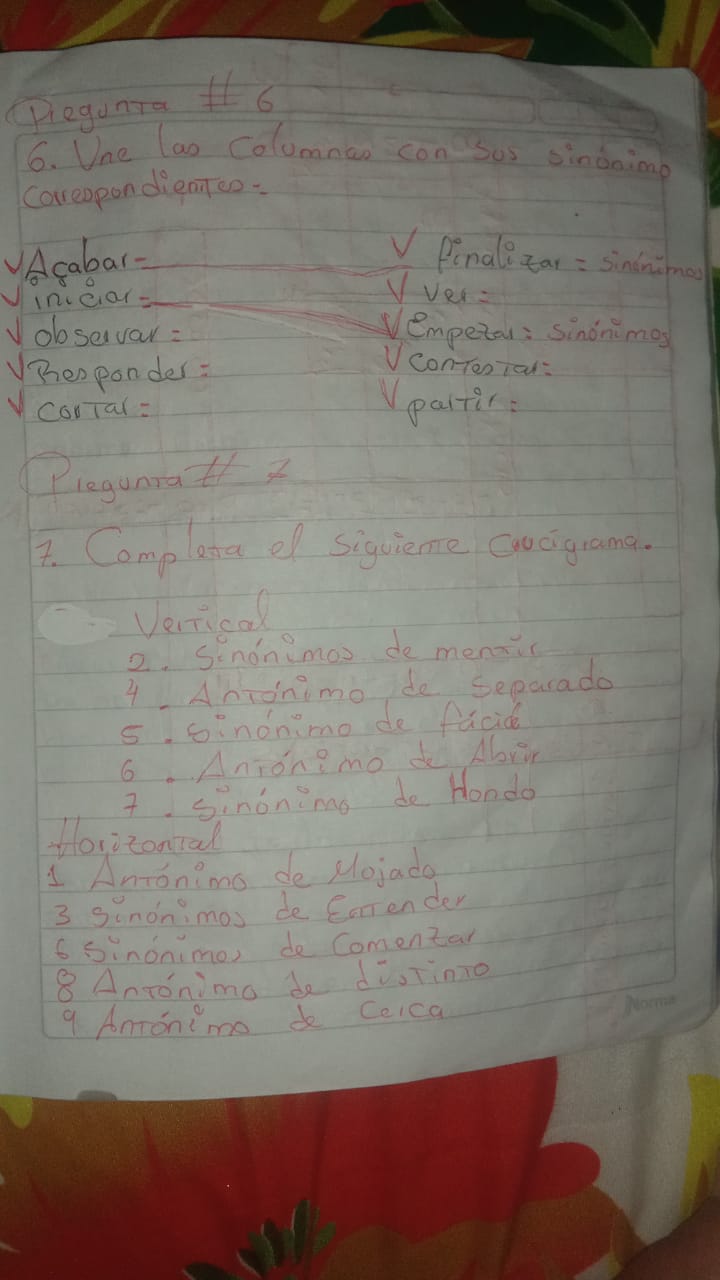 Pregunta # 6
6. Une las columnas con sus sinónimo
correspondientes=
Acabar= finalizar = sinónimos
iniciar= ver=
observar= Empezar: sinónimos
Responder= contestar=
cortar= partir=
Pregunta # 7
7. Completa el siguiente crucigrama.
Vertical
2. Sinónimos de mentir
4. Antónimo de separado
5. sinónimo de fácil
6. Antónimo de Abrir
7. sinónimo de Hondo
Horizontal
1 Antónimo de Mojado
3 sinónimos de
6 sinónimos de comenzar
8 Antónimo de distinto
9 Antónimo de cerca
Norma